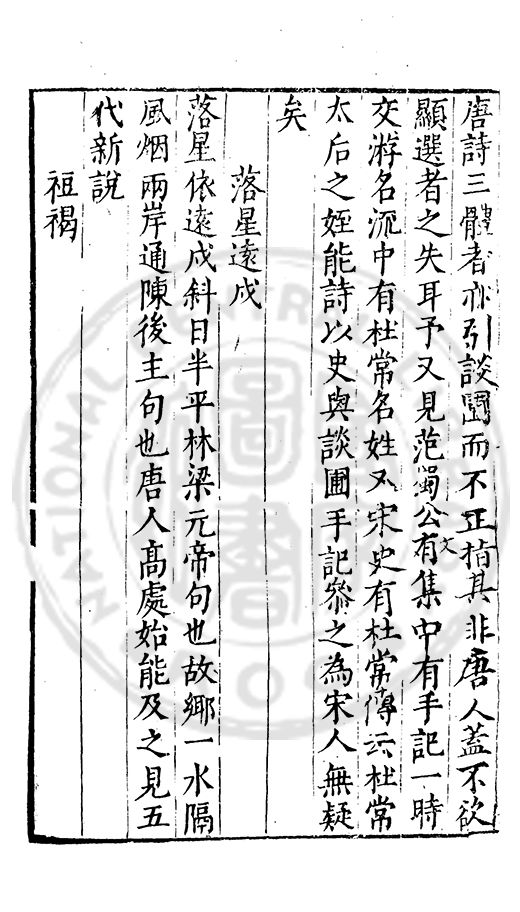 唐詩三體者亦引談圃而不正指其非唐人蓋不欲
顯選者之失耳予又見范蜀公有文集中有手記一時
交游名流中有杜常名姓又宋史有杜常傳云杜常
太后之姪能詩以史與談圃手記參之為宋人無疑
矣
落星遠戍
落星依遠戍斜日半平林梁元帝句也故鄉一水隔
風烟兩岸通陳後主句也唐人高處始能及之見五
代新說
袒裼